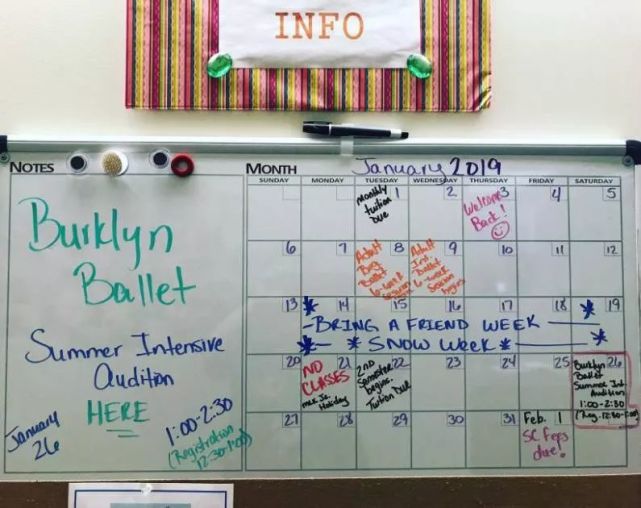 INFO
NOTES
Burklyn
Ballet
Summer Intensive
Audition
HERE
January
26
1:00-2:30
(Registration
12:30-1:00)
MONTH January 2019
SUNDAY MONDAY TUESDAY WEDNESDAY THURSDAY FRIDAY SATURDAY
1 2 3 4 5
monthly
tuition
Due
Welcome
Back!
6 7 8 9 10 11 12
Adult
Beg.
Ballet
6-week
Session
begins
Adult
Int.
Ballet
6-week
Session
begins
13 14 15 16 17 18 19
* -BRING A FRIEND WEEK - *
* - * SNOW WEEK * - *
20 21 22 23 24 25 26
NO
CLASSES
Holiday
2nd
Semester
begins.
Tuition Due
Burklyn
Ballet
Summer Int.
Audition
1:00-2:30
(Reg. 12:30-1:00)
27 28 29 30 31 Feb. 1
SC Fees
due!